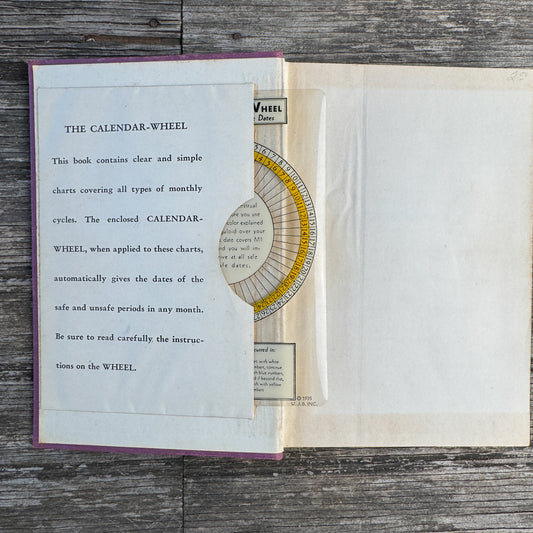 THE CALENDAR-WHEEL
This book contains clear and simple
charts covering all types of monthly
cycles. The enclosed CALENDAR-
WHEEL, when applied to these charts,
automatically gives the dates of the
safe and unsafe periods in any month.
Be sure to read carefully the instruc-
tions on the WHEEL.
WHEEL
Dates
you use
color explained
over your
date covers M1
and you will
at all safe
dates.
curred in:
with white
continue
with blue numbers,
beyond
with yellow
© 1935
U.J.B. INC.